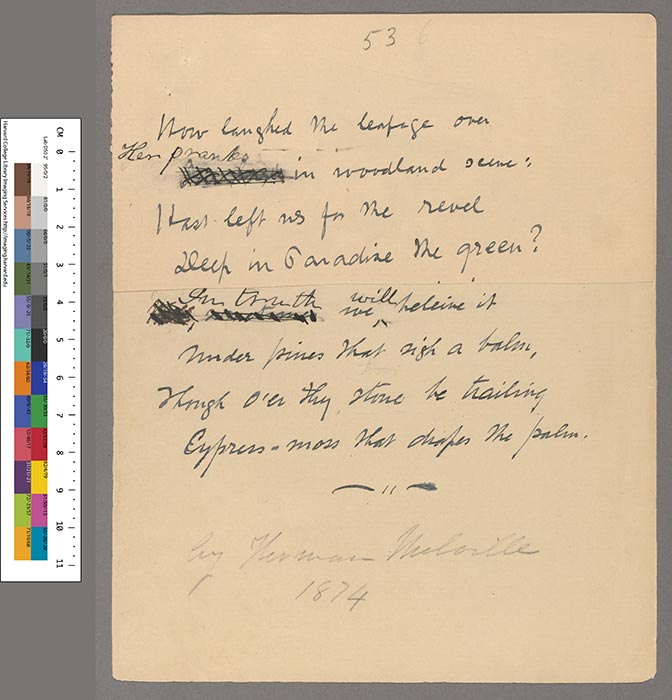 53 6
How laughed the leafage over
Her pranks
in woodland scene:
Hast left us for the revel
Deep in Paradise the green?
In truth will
we beleive it
Under pines that sigh a balm,
Though o'er thy stone be trailing
Cypress-moss that drapes the palm.
by Herman Melville
1874
CM 0 1 2 3 4 5 6 7 8 9 10 11
Harvard College Library Imaging Services